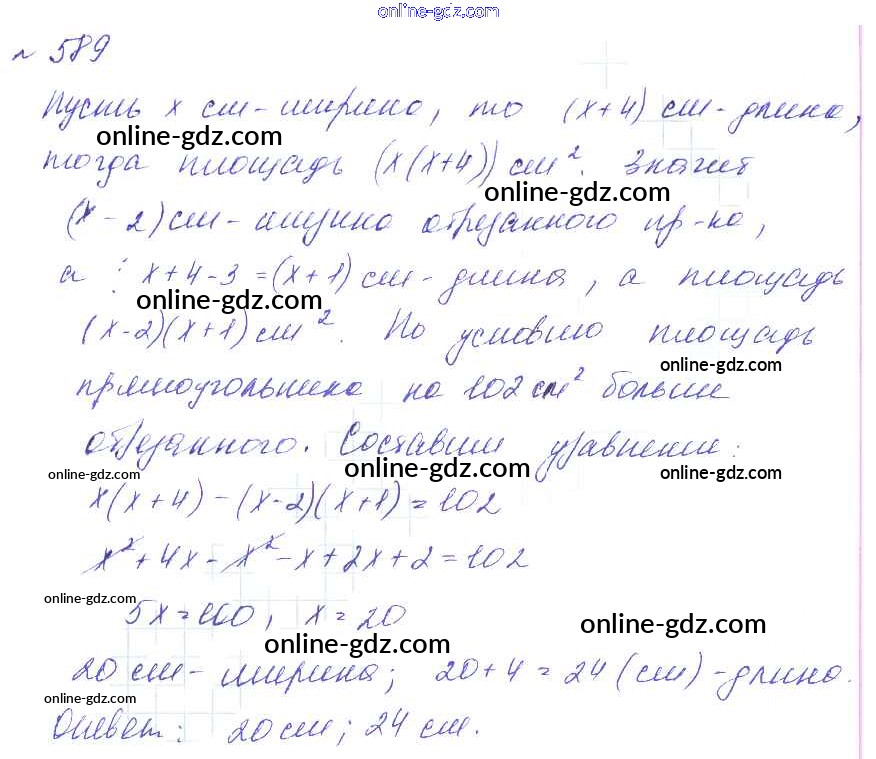 online-gdz.com
№ 589
Пусть x см - ширина, то (x+4) см - длина,
online-gdz.com
тогда площадь (x(x+4)) см². Значит
online-gdz.com
(x-2) см - ширина отрезанного пр-ка,
а : x+4-3=(x+1) см - длина, а площадь
online-gdz.com
(x-2)(x+1) см². По условию площадь
online-gdz.com
прямоугольника на 102 см² больше
отрезанного. Составим уравнение:
online-gdz.com online-gdz.com online-gdz.com
x(x+4)-(x-2)(x+1)=102
x²+4x-x²-x+2x+2=102
online-gdz.com
5x=100, x=20
online-gdz.com online-gdz.com
20 см - ширина; 20+4=24 (см) - длина.
online-gdz.com
Ответ: 20 см; 24 см.